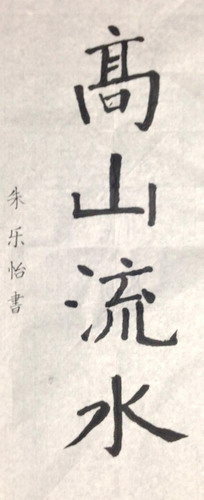 髙山流水
朱乐怡書